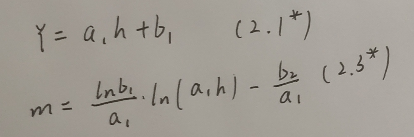 Y = a₁h + b₁ (2.1*)
m = \frac{ln b₁}{a₁} · ln(a₁h) - \frac{b₂}{a₁} (2.3*)